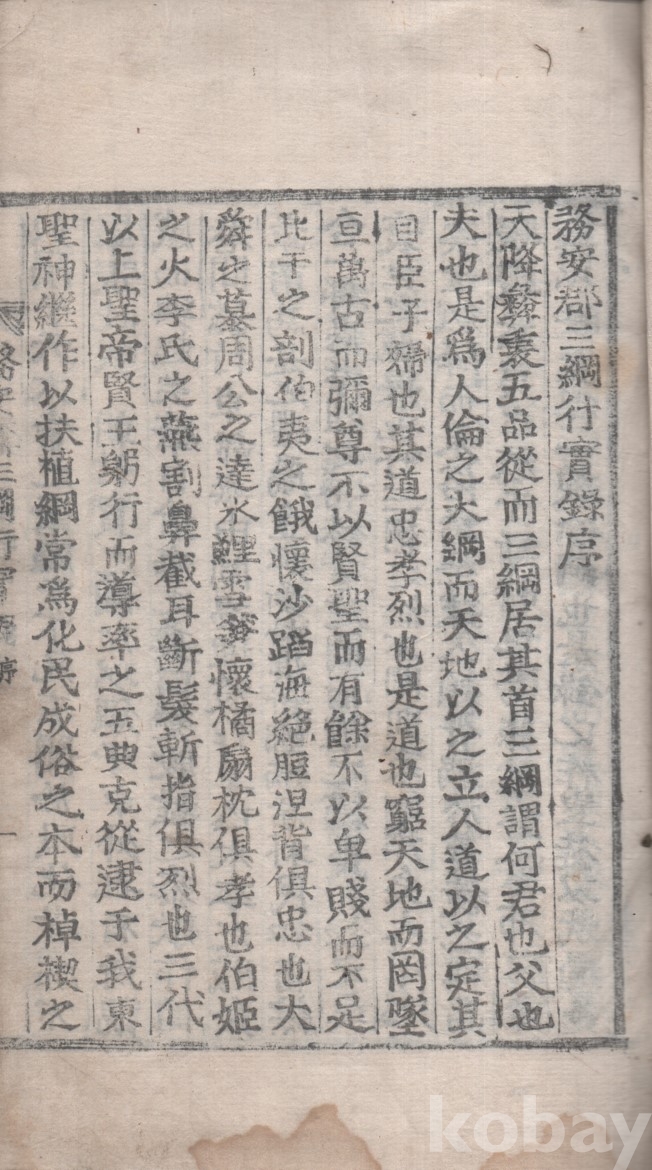 務安郡三綱行實錄序
天降彝衷五品從而三綱居其首三綱謂何君也父也
夫也是爲人倫之大綱而天地以之立人道以之定其
目臣子婦也其道忠孝烈也是道也窮天地而罔墜
亘萬古而彌尊不以賢聖而有餘不以卑賤而不足
比干之剖伯夷之餓懷沙蹈海絶脰涅背俱忠也大
舜之慕周公之達氷鯉雪筍懷橘扇枕俱孝也伯姬
之火李氏之燕割鼻截耳斷髮斬指俱烈也三代
以上聖帝賢王躬行而導率之五典克從逮于我東
聖神繼作以扶植綱常爲化民成俗之本而棹楔之
務安郡三綱行實錄序
一
kobay